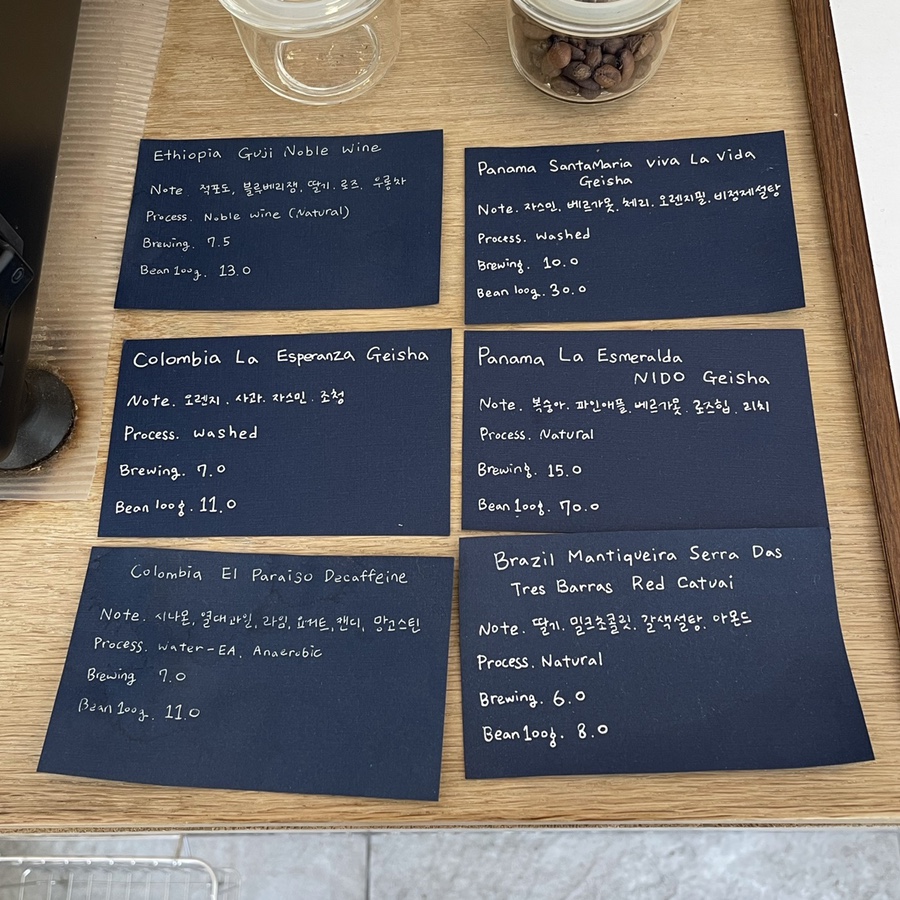 Ethiopia Guji Noble Wine
Note 적포도, 블루베리잼, 딸기. 로즈. 우롱차
Process. Noble wine (Natural)
Brewing. 7.5
Bean 100g. 13.0
Panama SantaMaria Viva La Vida
Geisha
Note. 자스민, 베르가못, 체리, 오렌지필, 비정제설탕
Process. washed
Brewing. 10.0
Bean 100g. 30.0
Colombia La Esperanza Geisha
Note. 오렌지. 사과. 자스민. 조청
Process. washed
Brewing. 7.0
Bean 100g. 11.0
Panama La Esmeralda
NIDO Geisha
Note. 복숭아. 파인애플. 베르가못. 로즈힙. 리치
Process. Natural
Brewing. 15.0
Bean 100g. 70.0
Colombia El Paraiso Decaffeine
Note. 시나몬, 열대과일, 라임, 요거트, 캔디, 망고스틴
Process. water-EA. Anaerobic
Brewing 7.0
Bean 100g. 11.0
Brazil Mantiqueira Serra Das
Tres Barras Red Catuai
Note. 딸기. 밀크초콜릿. 갈색설탕. 아몬드
Process. Natural
Brewing. 6.0
Bean 100g. 8.0